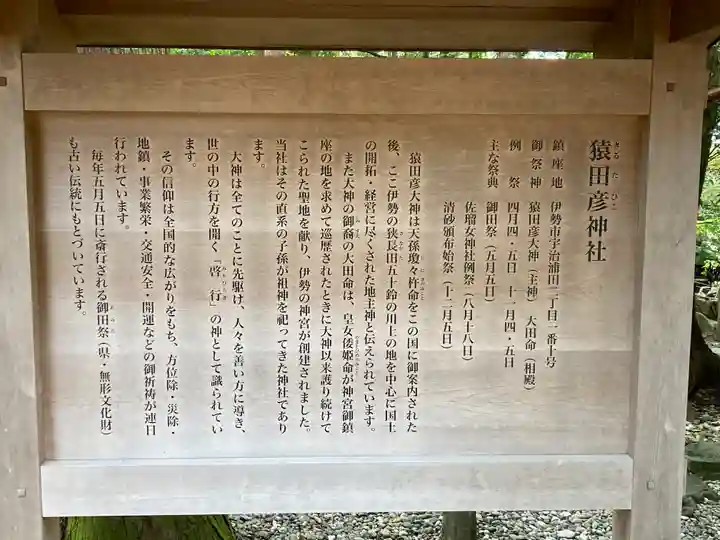 猿田彦神社
鎮座地　伊勢市宇治浦田二丁目一番十号
御祭神　猿田彦大神（主神）　大田命（相殿）
例　祭　四月四・五日　十一月四・五日
主な祭典　御田祭（五月五日）
佐瑠女神社例祭（八月十八日）
清砂頒布始祭（十二月五日）
猿田彦大神は天孫瓊々杵命をこの国に御案内された
後、ここ伊勢の狭長田五十鈴の川上の地を中心に国土
の開拓・経営に尽くされた地主神と伝えられています。
また大神の御裔の大田命は、皇女倭姫命が神宮御鎮
座の地を求めて巡歴されたときに大神以来護り続けて
こられた聖地を献り、伊勢の神宮が創建されました。
当社はその直系の子孫が祖神を祀ってきた神社であり
ます。
大神は全てのことに先駆け、人々を善い方に導き、
世の中の行方を開く『啓　行』の神として識られてい
ます。
その信仰は全国的な広がりをもち、方位除・災除・
地鎮・事業繁栄・交通安全・開運などの御祈祷が連日
行われています。
毎年五月五日に斎行される御田祭（県・無形文化財）
も古い伝統にもとづいています。